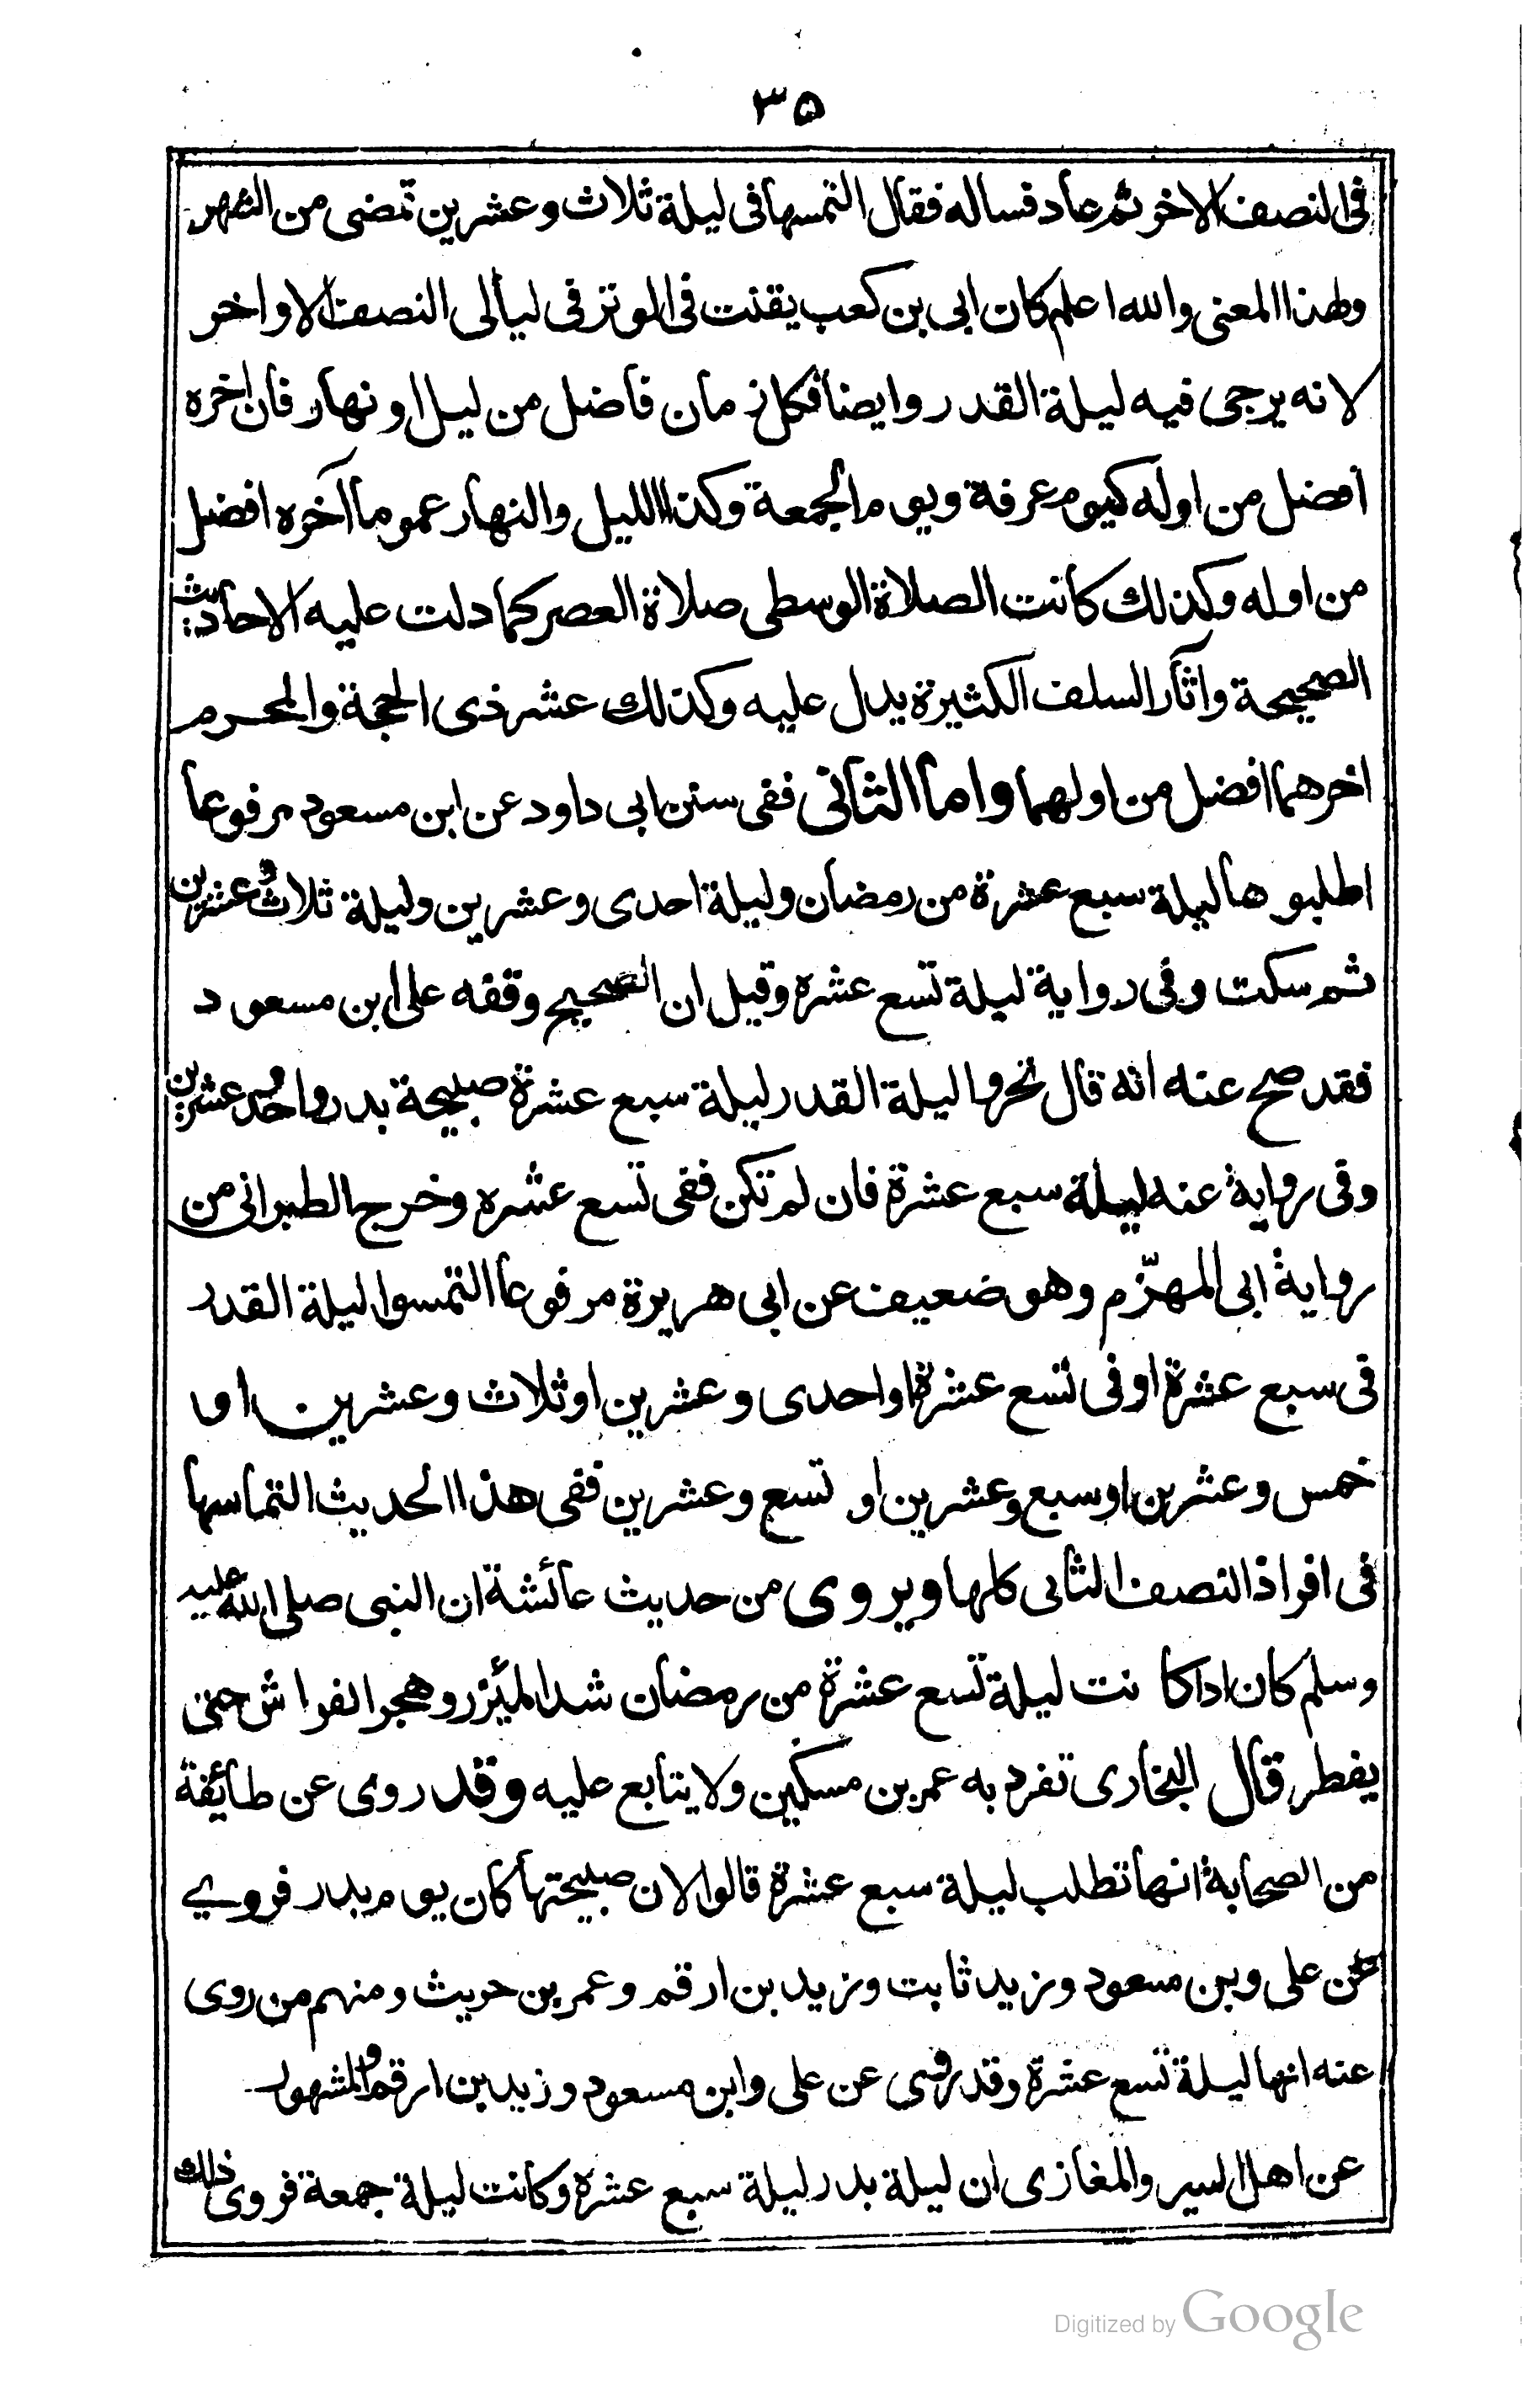 ٣٥
فى النصف الاخر ثم عاد فساله فقال التمسها فى ليلة ثلاث وعشرين تمضى من الشهر
ولهذا المعنى والله اعلم كان ابى بن كعب يقنت فى الوتر فى ليالى النصف الاواخر
لانه يرجى فيه ليلة القدر وايضا فكل زمان فاضل من ليل او نهار فان اخره
افضل من اوله كيوم عرفة ويوم الجمعة وكذا الليل والنهار عموما آخره افضل
من اوله وكذلك كانت الصلاة الوسطى صلاة العصر كما دلت عليه الاحاديث
الصحيحة وآثار السلف الكثيرة يدل عليه وكذلك عشر ذى الحجة والمحرم
اخرهما افضل من اولهما واما الثانى ففى سنن ابى داود عن ابن مسعود مرفوعا
اطلبوها ليلة سبع عشرة من رمضان وليلة احدى وعشرين وليلة ثلاث وعشرين
ثم سكت وفى رواية ليلة تسع عشره وقيل ان الصحيح وقفه على ابن مسعود
فقد صح عنه انه قال تحروا ليلة القدر ليلة سبع عشرة صبيحة بدر واحد وعشرين
وفى رواية عنه ليلة سبع عشرة فان لم تكن ففى تسع عشره وخرج الطبرانى من
رواية ابى المهزّم وهو ضعيف عن ابى هريرة مرفوعا التمسوا ليلة القدر
فى سبع عشرة او فى تسع عشرة او احدى وعشرين او ثلاث وعشرين او
خمس وعشرين او سبع وعشرين او تسع وعشرين ففى هذا الحديث التماسها
فى افراد النصف الثانى كلها ويروى من حديث عائشة ان النبى صلى الله عليه
وسلم كان اذا كانت ليلة تسع عشرة من رمضان شد المئزر وهجر الفراش حتى
يفطر قال البخارى تفرد به عمر بن مسكين ولا يتابع عليه وقد روى عن طائفة
من الصحابة انها تطلب ليلة سبع عشرة قالوا لان صبيحتها كان يوم بدر فروي
عن على وبن مسعود وزيد ثابت وزيد بن ارقم وعمر بن حريث ومنهم من روى
عنه انها ليلة تسع عشرة وقد روى عن على وابن مسعود وزيد بن ارقم والمشهور
عن اهل السير والمغازى ان ليلة بدر ليلة سبع عشرة وكانت ليلة جمعة فروى ذلك
Digitized by Google